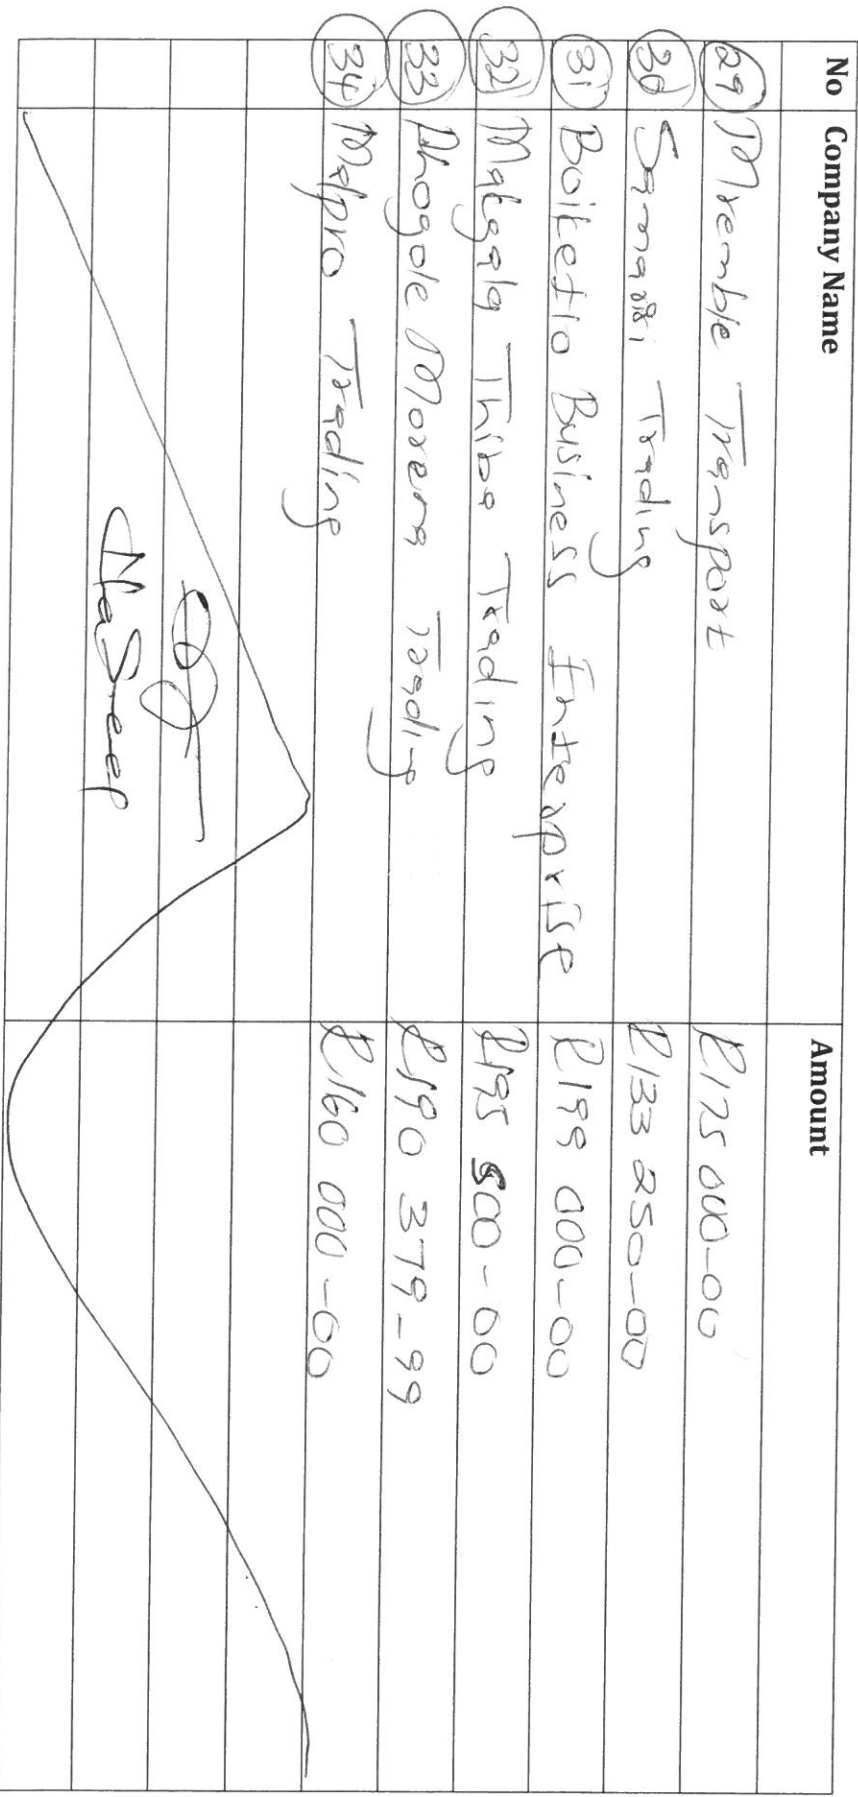 No Company Name Amount
29 Mremble Transport R175 000-00
30 Trading R133 250-00
31 Boiketlo Business Enterprise R199 000-00
32 Makgala Thiba Trading R195 500-00
33 Phogole Morena Trading R190 379-99
34 Malpro Trading R160 000-00